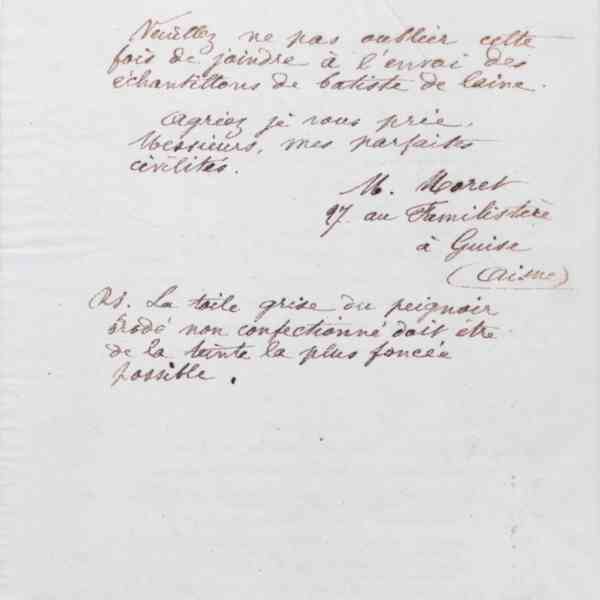 Veuillez ne pas oublier cette
fois de joindre à l'envoi des
échantillons de batiste de laine.
Agréez je vous prie,
Messieurs, mes parfaites
civilités.
M. Moret
97 au Familistère
à Guise
(Aisne)
PS. La toile grise du peignoir
brodé non confectionné doit être
de la teinte la plus foncée
possible.